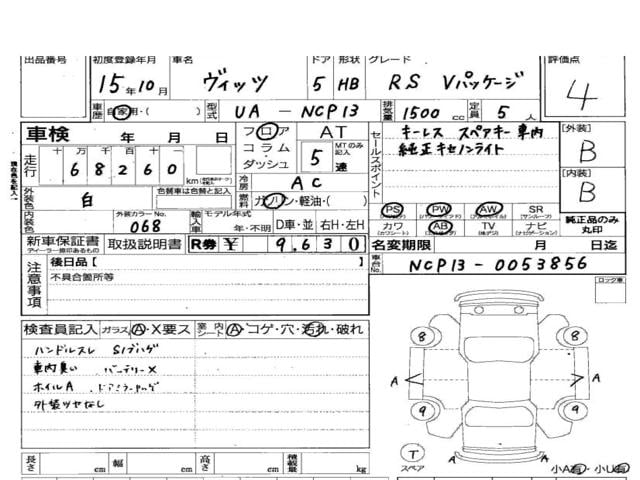 出品番号 初度登録年月 車名 ドア 形状 グレード 評価点
15年10月 ヴィッツ 5 HB RS Vパッケージ 4
車歴 自家用・( ) 型式 UA - NCP13 排気量 1500 cc 定員 5人
車検 年 月 日 フロア AT セールスポイント キーレス スペアキー車内 [外装]
走行 十万千百十 コラム MTのみ記入 純正キセノンライト B
68260 km ダッシュ 5速 [内装]
冷房 AC B
外装色 白 色替車は色替と記入 燃料 ガソリン・軽油・( ) PS PW AW SR
内装色 外装カラーNo. 068 輸入車 モデル年式 年・不明 D車・並 右H・左H カワ AB TV ナビ 純正品のみ丸印
新車保証書 取扱説明書 R券 ¥ 9,630 名変期限 月 日迄
注意事項 後日品[ ] 車台No. NCP13-0053856
不具合箇所等 ロック車
検査員記入 ガラス A・X要ス 室内シート A・コゲ・穴・汚れ・破れ
ハンドルスレ S/ブハゲ
車内臭い バッテリーX
ホイルA
外装ツヤなし
8 8
A A
9 9
T スペア A A
長さ cm 幅 cm 高さ cm 積載量 kg 小A有・小U有